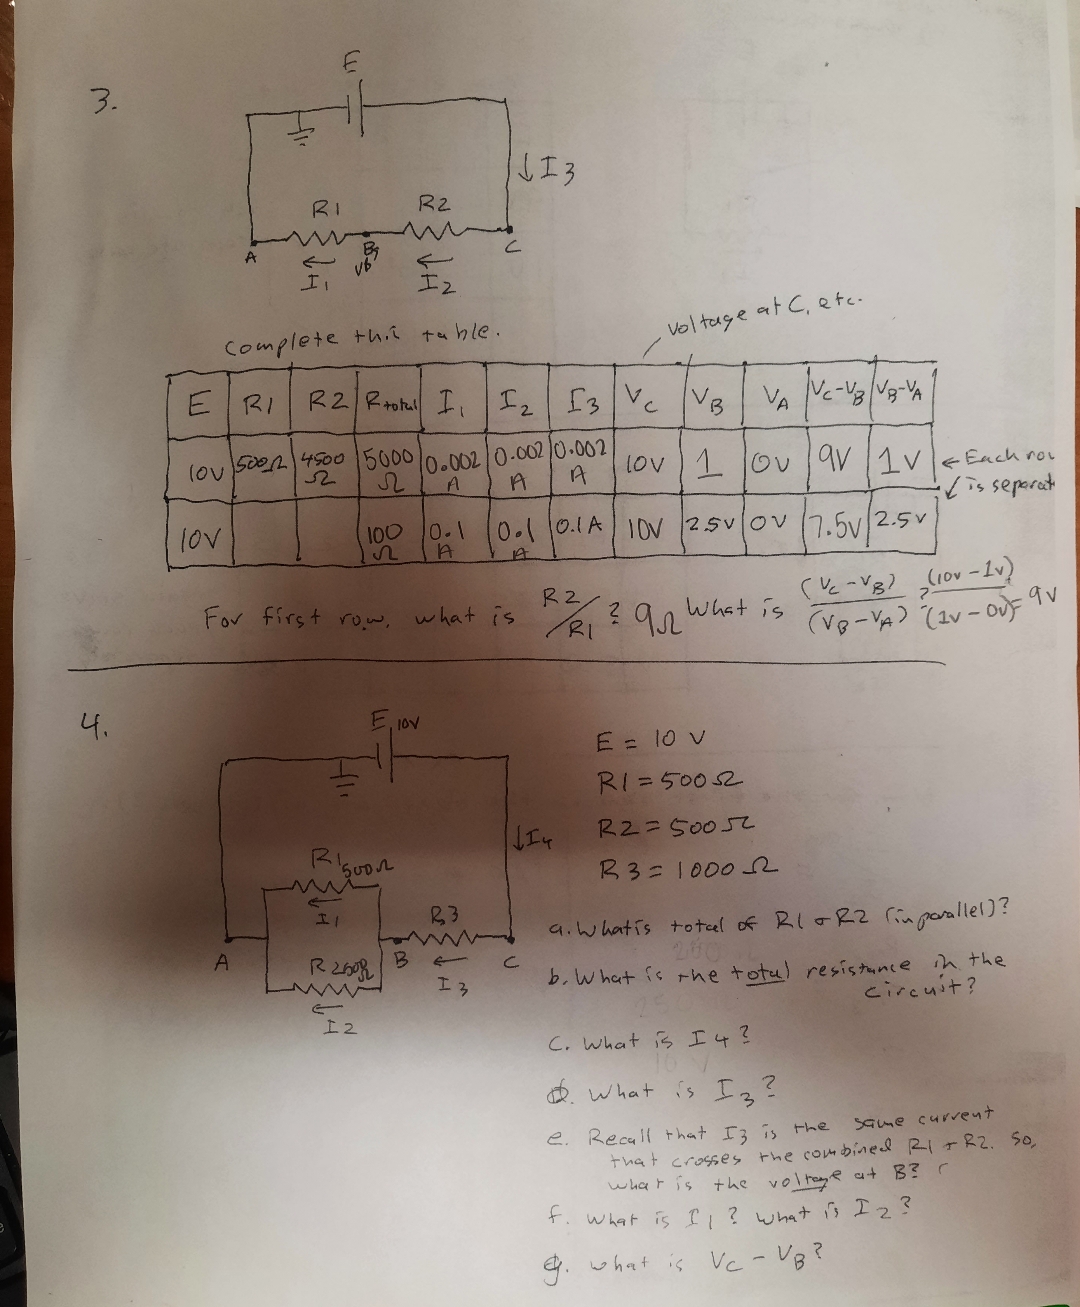 3.
E
↓I3
R1 R2
A B, Vb C
← I1 ← I2
Complete this table.
voltage at C, etc.
E R1 R2 Rtotal I1 I2 I3 VC VB VA VC-VB VB-VA
10V 500Ω 4500Ω 5000Ω 0.002A 0.002A 0.002A 10V 1 0V 9V 1V
← Each row
↓ is separat
10V 100Ω 0.1A 0.1A 0.1A 10V 2.5V 0V 7.5V 2.5V
For first row, what is R2/R1? 9Ω What is (VC-VB)/(VB-VA)? (10V-1V)/(1V-0V) = 9V
4.
E, 10V
↓I4
R1 500Ω
← I1
R3
A B C
R2 500Ω ← I3
← I2
E = 10 V
R1 = 500Ω
R2 = 500Ω
R3 = 1000Ω
a. What is total of R1 & R2 (in parallel)?
b. What is the total resistance in the
circuit?
c. What is I4?
d. What is I3?
e. Recall that I3 is the same current
that crosses the combined R1 + R2. So,
what is the voltage at B?
f. What is I1? What is I2?
g. What is VC - VB?